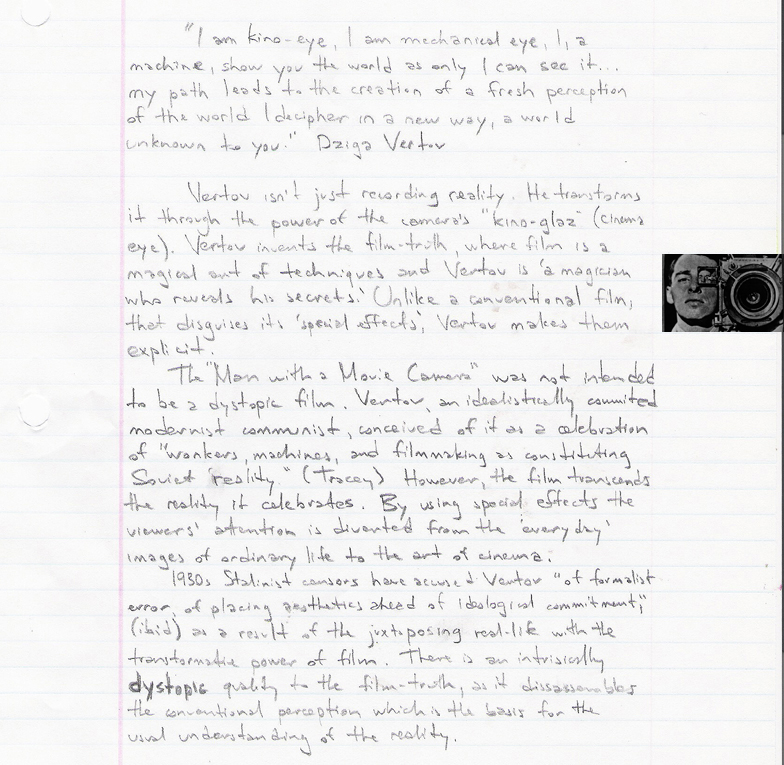 "I am kino-eye, I am mechanical eye, I, a
machine, show you the world as only I can see it...
my path leads to the creation of a fresh perception
of the world I decipher in a new way, a world
unknown to you." Dziga Vertov
Vertov isn't just recording reality. He transforms
it through the power of the camera's "kino-glaz" (cinema
eye). Vertov invents the film-truth, where film is a
magical art of techniques and Vertov is 'a magician
who reveals his secrets.' Unlike a conventional film,
that disguises its 'special effects', Vertov makes them
explicit.
The "Man with a Movie Camera" was not intended
to be a dystopic film. Vertov, an idealistically commited
modernist communist, conceived of it as a celebration
of "workers, machines, and filmmaking as constituting
Soviet reality." (Tracey) However, the film transcends
the reality it celebrates. By using special effects the
viewers' attention is diverted from the 'every day'
images of ordinary life to the art of cinema.
1930s Stalinist censors have accused Vertov "of formalist
error, of placing aesthetics ahead of ideological commitment,"
(ibid) as a result of the juxtoposing real-life with the
transformative power of film. There is an intrisically
dystopic quality to the film-truth, as it dissassembles
the conventional perception which is the basis for the
usual understanding of the reality.